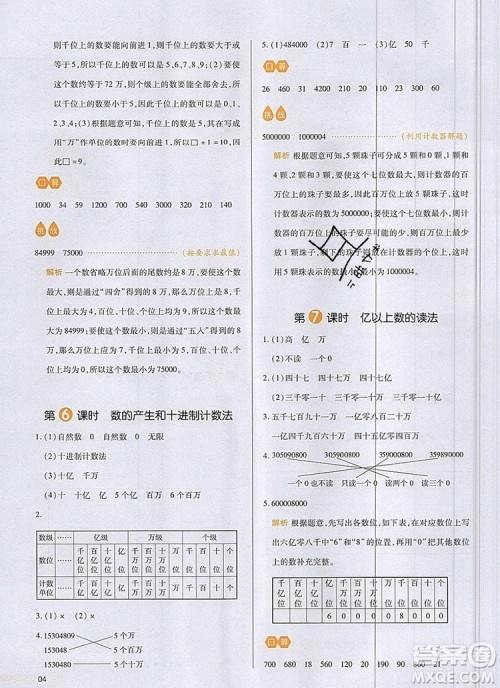 则千位上的数要能向前进1,则千位上的数要大
于或等于5,所以□≥5。(2)根据题意可知,要使
这个数约等于72万,则个级上的数要舍去,也就
是千位上的数小于5,所以□<5。(3)要使这个数
改写成用“万”作单位的数时要向前进1,百万位
上变成6,(4)根据题意可知,千位上要能向前进
1,而万位上的数加1后又要能向十万位进1,因
此□=9。
口算
1000 34 59 1200 160 30 31 90
挑战
84999 75000 (按要求求最值)
解析 一个数省略万位后面的尾数约是8万,这个
数最大是多少?就是通过“四舍”得到8万,所以万
位上是8,千位上最大是4,其余各位上的数最大
为9,所以这个数最大为84999;一个数省略万位
后面的尾数约是8万,这个数最小是多少?就是通过“五入”得到8万,
所以万位上是7,千位上最小是5,其余各位上的
数最小是0,所以这个数最小为75000。
第6课时 数的产生和十进制计数法
1.(1)自然数 0 自然数 0 无限
(2)十进制计数法
(3)十亿 千万
(4)十 十亿 百亿 千亿
2.
数级 … 亿级 万级 个级
数位 … 千亿位 百亿位 十亿位 亿位 千万位 百万位 十万位 万位 千位 百位 十位 个位
计数单位 … 千亿 百亿 十亿 亿 千万 百万 十万 万 千 百 十 个
3.(1)× (2)×
4.15304809 5个万
1530480 5个十万
153048 5个百万
04
5.(1)484000 (2)7 百 一 (3)亿 50 千
口算
26 460 31 1200 20 820 60 210
挑战
5000000 1000004 (利用计数器解题)
解析 根据题意可知,5颗珠子可分成5和0,1和
4,2和3,因此要使这个七位数最大,则计数器的百
万位上的珠子要尽可能的多,所以计数器的百万位
上有5颗珠子,即这个数最大为5000000;要使这
个数最小,则百万位上的珠子要尽可能少,所以百
万位上有1颗珠子,剩下的4颗珠子在个位上,所
以用5颗珠表示的数最小为1000004。
第7课时 亿以上数的读法
1.(1)高 亿 万
(2)不读 一个0 不读 一个0
2.(1)四十七 四十七 (2)四十七亿
3.五千七百九十一万 一亿零八百一十万
一亿四千三百万 一亿零五十万
4.
5.600008000
解析 根据题意,先写出各数位,在对应数位上写
出六亿零八千中“6”和“8”,再用“0”将其他数位上
的数补充完整。
千亿位 百亿位 十亿位 亿位 千万位 百万位 十万位 万位 千位 百位 十位 个位
6 0 0 0 0 8 0 0 0
口算
700 680 13 120 160 860 98 21
答案圈
MXQE.COM